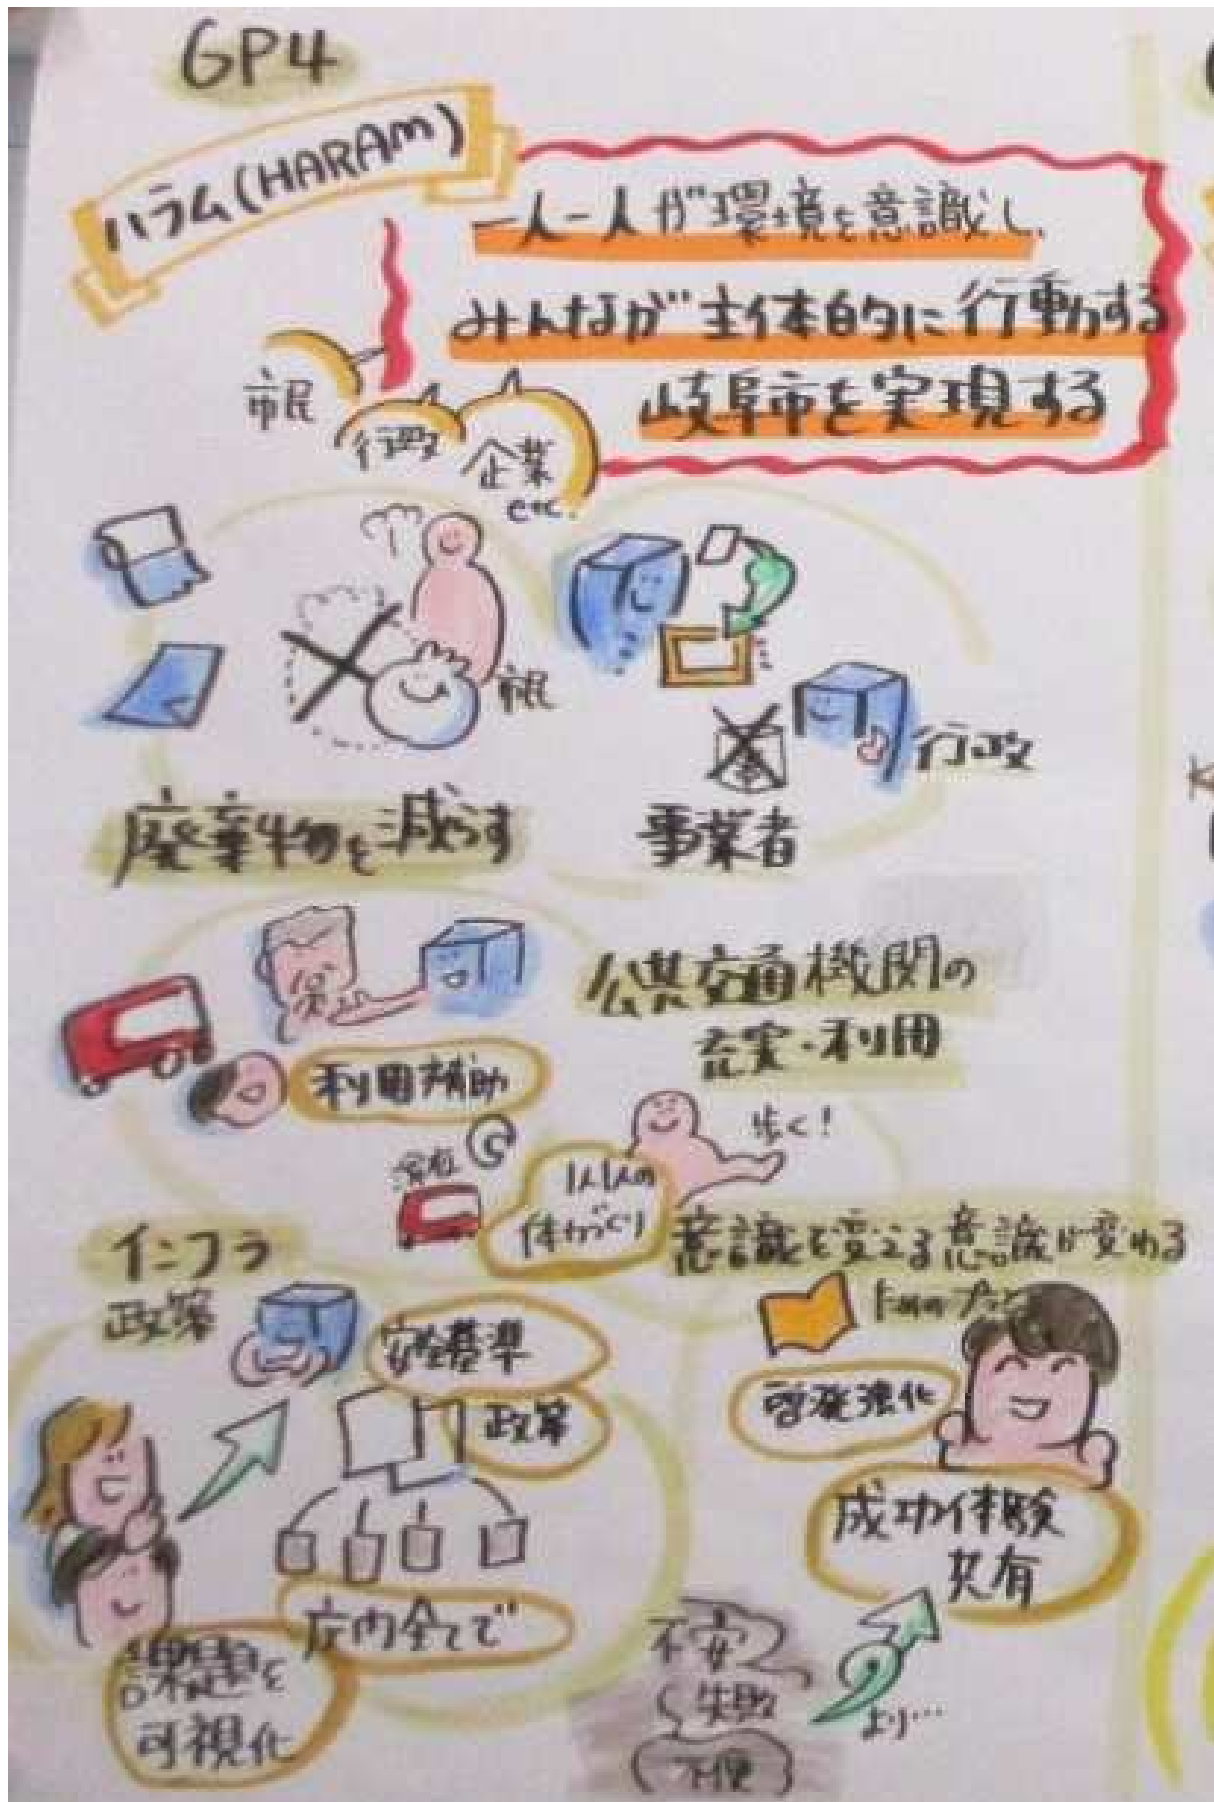 GP4
ハラム(HARAm)
一人一人が環境を意識し、
みんなが主体的に行動する
岐阜市を実現する
市民
行政
企業
etc.
市民
行政
廃棄物を減らす
事業者
公共交通機関の
充実・利用
利用補助
歩く!
1人1人の
体力づくり
インフラ
政策
意識を変える意識が変わる
安全基準
政策
啓発強化
成功体験
共有
庁内全てで
課題を
可視化
不安
失敗
不便
より…